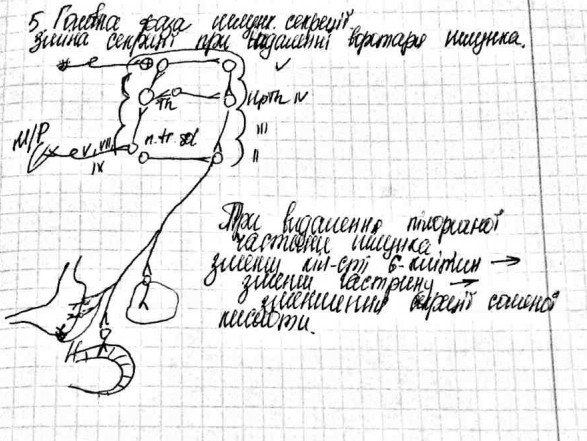 5. Головна фаза шлунк. секреції
Зміна секреції при видаленні воротаря шлунка.
V
Th
Hpth IV
III
II
М/Р
V, VII
IX
n. tr. sol
При видалення пілоричної
частини шлунка
зменш кіл-сті G-клітин →
зменш гастрину →
зменшення секреції соляної
кислоти.